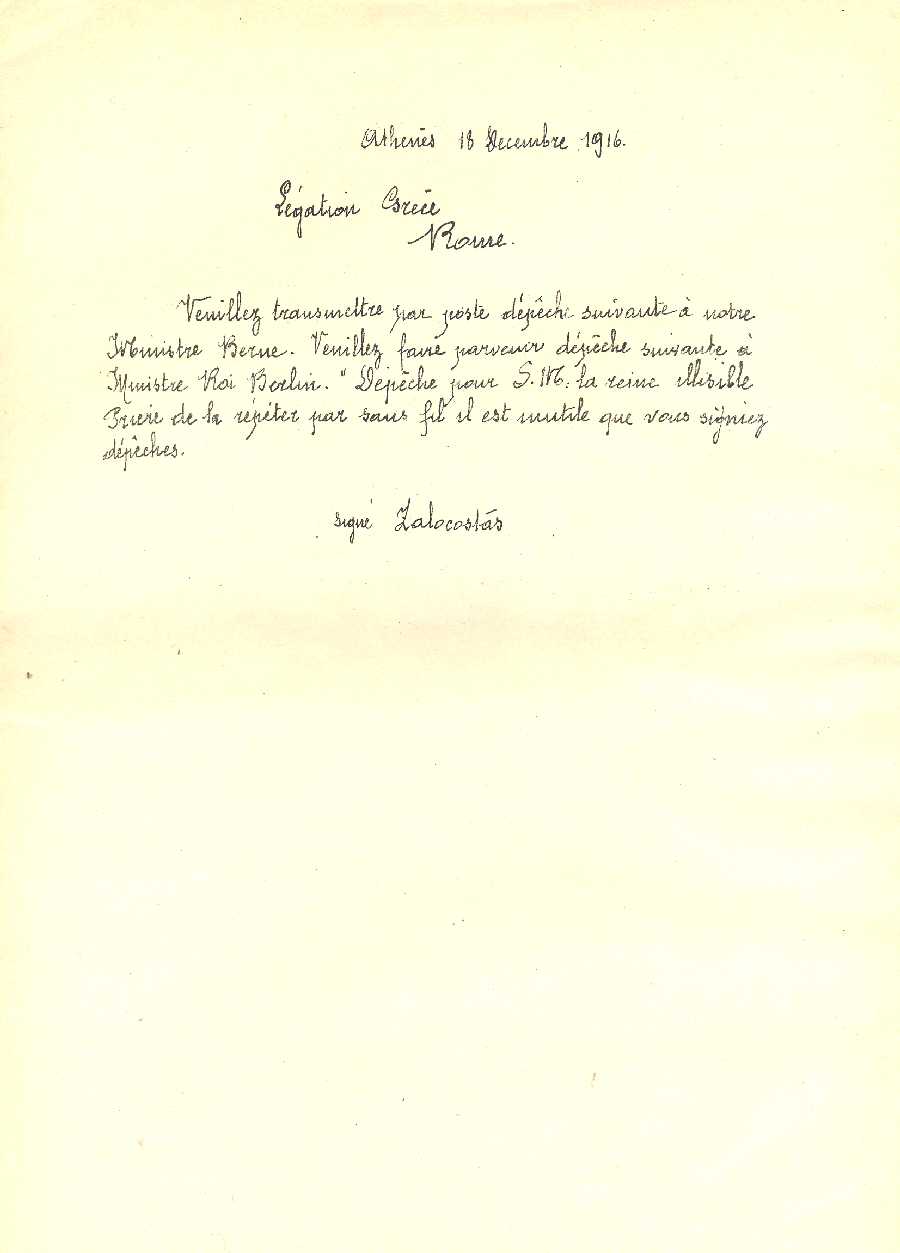 Athenès 18 Decembre 1916.
Légation Grèce
Rome.
Veuillez transmettre par poste dépêche suivante à notre
Ministre Berne. Veuillez faire parvenir dépêche suivante à
Ministre Roi Berlin. " Dépêche pour S. M. la reine illisible
Prière de la répéter par sans fil il est inutile que vous signiez
dépêches.
signé Zalocostás